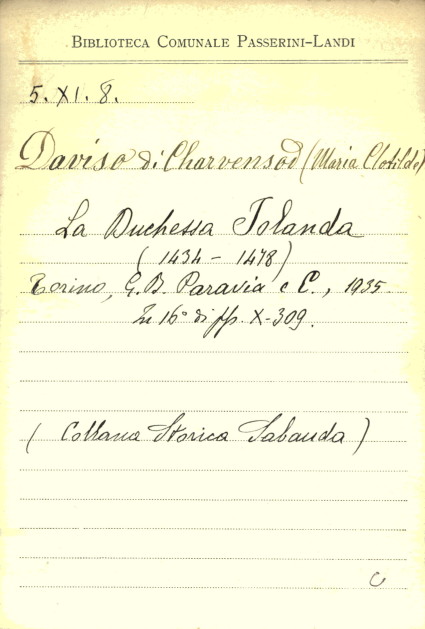 BIBLIOTECA COMUNALE PASSERINI-LANDI
5. XI. 8.
Daviso di Charvensod (Maria Clotilde)
La Duchessa Iolanda
(1434 - 1478)
Torino, G. B. Paravia e C., 1935.
In 16° di pp. X-309.
(Collana Storica Sabauda)
C